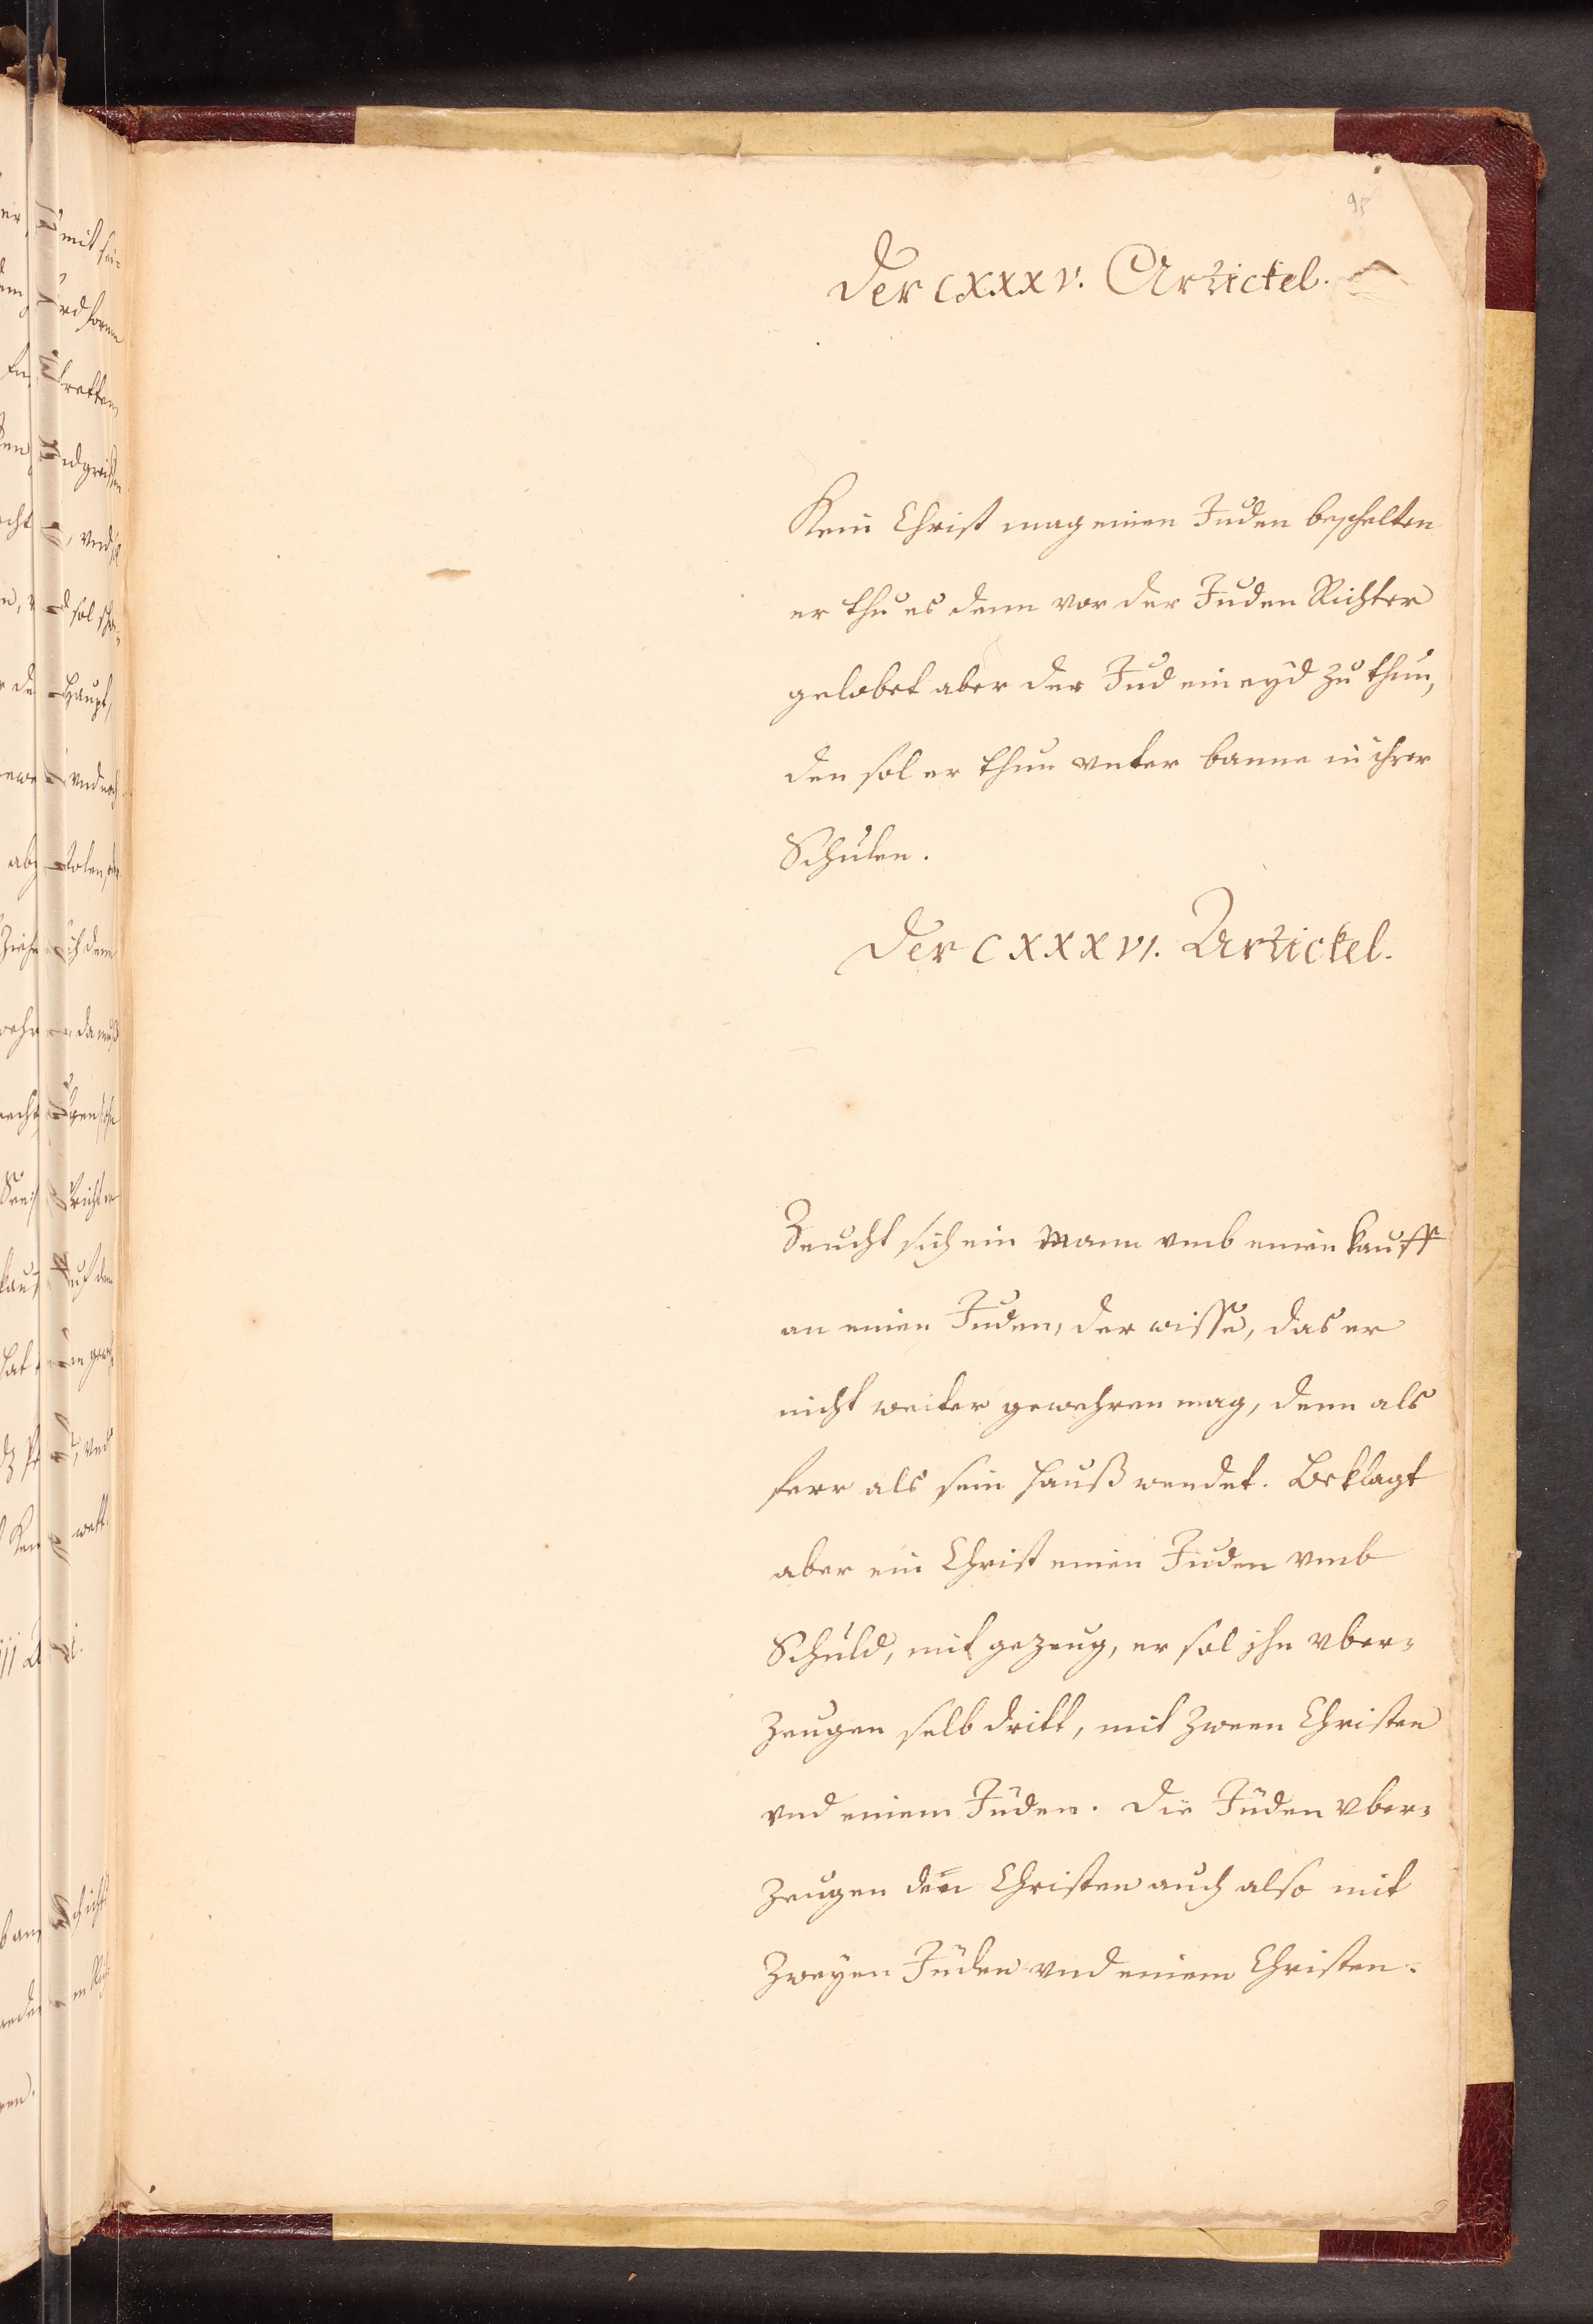 95
Der CXXXV. Artickel.
Kein Christ mag einen Juden beschelten
er thu es denn vor der Juden Richter
gelobet aber der Jud ein eyd zu thun,
den sol er thun unter banne in ihrer
Schulen.
Der CXXXVI. Artickel.
Zeucht sich ein Mann vmb einen kauff
an einen Juden, der wisse, das er
nicht weiter gewehren mag, denn als
ferr als sein hauß wendet. Beklagt
aber ein Christ einen Juden vmb
Schuld, mit gezeug, er sol jhn vber=
zeugen selb dritt, mit zween Christen
vnd einem Jüden. Die Jüden vber=
zeugen den Christen auch also mit
zweyen Jüden vnd einem Christen.